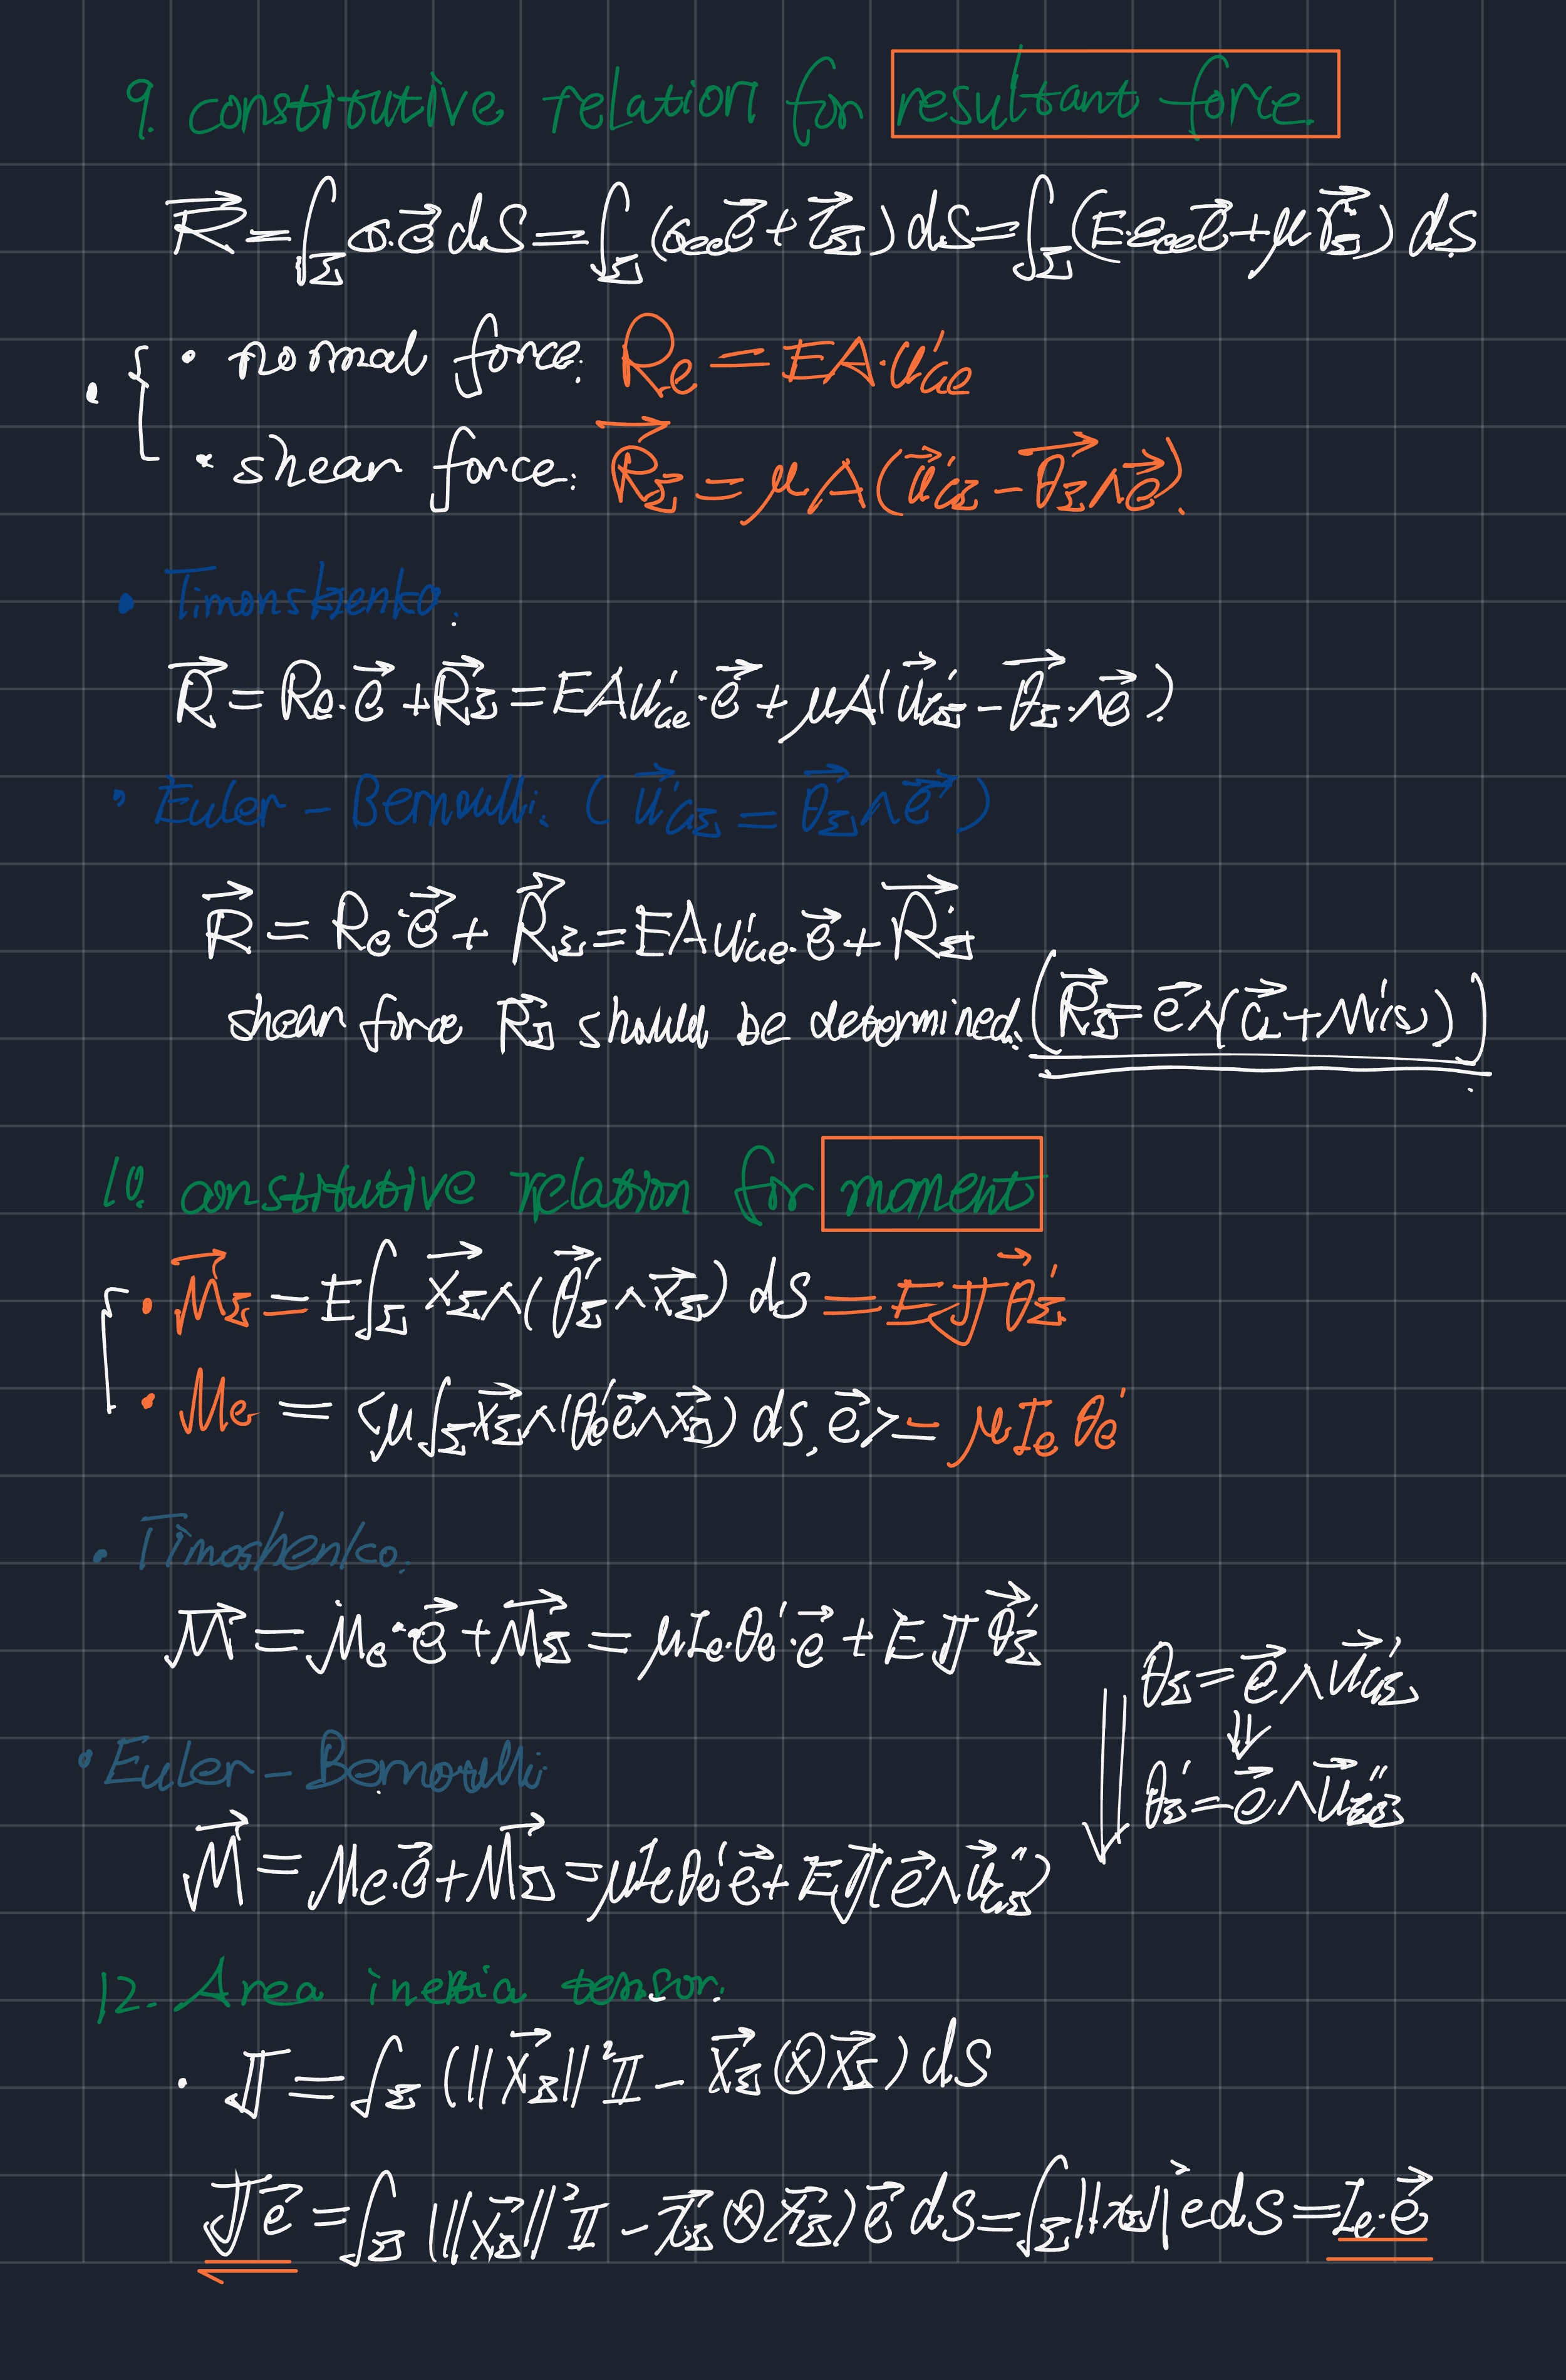 9. constitutive relation for resultant force.
R⃗ = ∫_Σ σ·e⃗ dS = ∫_Σ (σ_ee e⃗ + τ⃗_Σ) dS = ∫_Σ (E·ε_ee e⃗ + μ γ⃗_Σ) dS
• normal force: R_e = EA·u'_Ge
• shear force: R⃗_Σ = μA(u⃗'_GΣ − θ⃗_Σ∧e⃗).
• Timonshenko.
R⃗ = R_e·e⃗ + R⃗_Σ = EAu'_Ge·e⃗ + μA(u⃗'_GΣ − θ⃗_Σ·∧e⃗)
• Euler – Bernoulli. (u⃗'_GΣ = θ⃗_Σ∧e⃗)
R⃗ = R_e·e⃗ + R⃗_Σ = EAu'_Ge·e⃗ + R⃗_Σ
shear force R⃗_Σ should be determined. (R⃗_Σ = e⃗∧(c⃗_L + M'(s)))
10. constitutive relation for moment
• M⃗_Σ = E∫_Σ x⃗_Σ∧(θ⃗'_Σ∧x⃗_Σ) dS = E𝕁θ⃗'_Σ
• M_e = <μ∫_Σ x⃗_Σ∧(θ'_e e⃗∧x⃗_Σ) dS, e⃗> = μI_e θ'_e
• Timoshenko.
M⃗ = M_e·e⃗ + M⃗_Σ = μI_e·θ'_e·e⃗ + E𝕁θ⃗'_Σ
θ_Σ = e⃗∧u⃗'_GΣ
⇓
θ'_Σ = e⃗∧u⃗''_GΣ
• Euler – Bernoulli
M⃗ = M_e·e⃗ + M⃗_Σ = μI_e θ'_e e⃗ + E𝕁(e⃗∧u⃗''_GΣ)
12. Area inertia tensor.
• 𝕁 = ∫_Σ (||x⃗_Σ||² 𝕀 − x⃗_Σ ⊗ x⃗_Σ) dS
𝕁e⃗ = ∫_Σ (||x⃗_Σ||² 𝕀 − x⃗_Σ ⊗ x⃗_Σ) e⃗ dS = ∫_Σ ||x_Σ||² e dS = I_e·e⃗